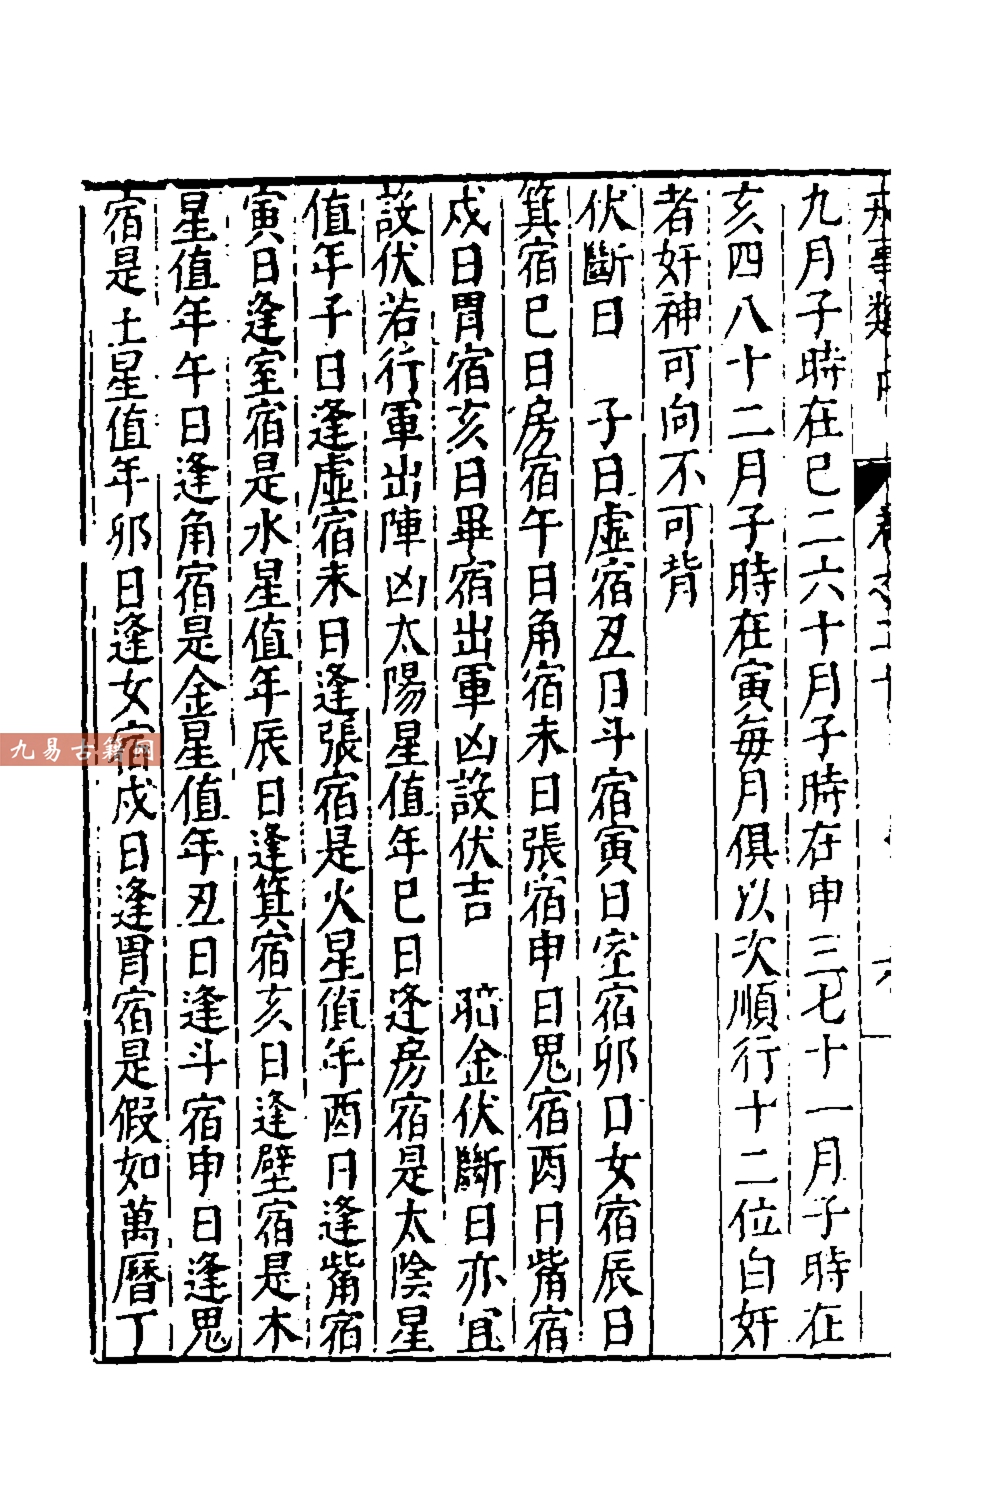 九月子時在巳二六十月子時在申三七十一月子時在
亥四八十二月子時在寅每月俱以次順行十二位白奸
者奸神可向不可背
伏斷日　子日虛宿丑日斗宿寅日室宿卯日女宿辰日
箕宿巳日房宿午日角宿未日張宿申日鬼宿酉日觜宿
戌日胃宿亥日畢宿出軍凶設伏吉　暗金伏斷日亦宜
設伏若行軍出陣凶太陽星值年巳日逢房宿是太陰星
值年子日逢虛宿未日逢張宿是火星值年酉日逢觜宿
寅日逢室宿是水星值年辰日逢箕宿亥日逢壁宿是木
星值年午日逢角宿是金星值年丑日逢斗宿申日逢鬼
宿是土星值年卯日逢女宿戌日逢胃宿是假如萬曆丁
九易古籍网